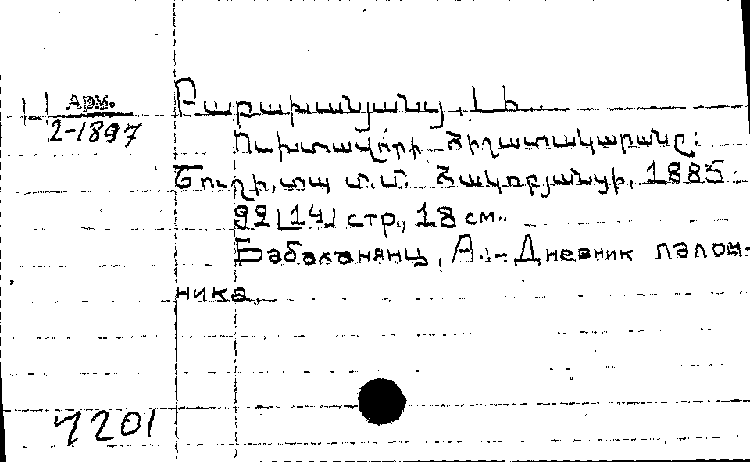 Арм.
2-1897
Բաբախանյանց, Ա.
Ուխտավորի հիշատակարանը:
Շուշի, տպ. Մ.Մ. Հակոբյանցի, 1885.
92 [14] стр., 18 см.
Бабаханянц, А. - Дневник палом-
ника.
7201